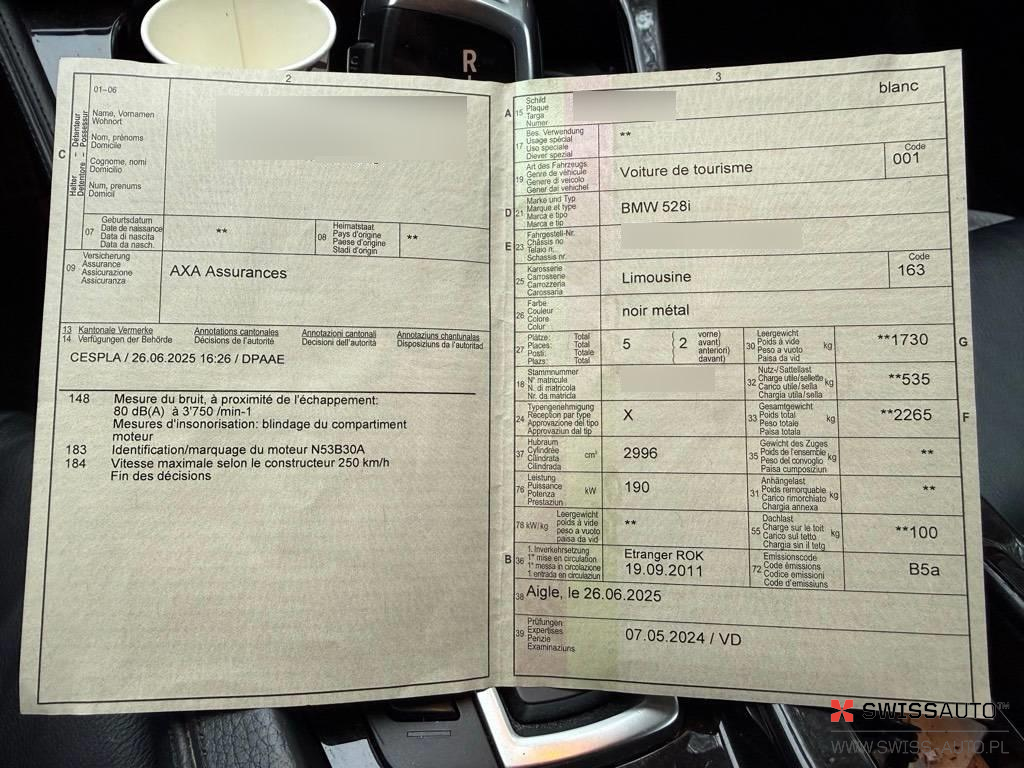 R
2
01–06
C
Halter – Détenteur
Detentore – Possessur
Name, Vornamen
Wohnort
Nom, prénoms
Domicile
Cognome, nomi
Domicilio
Num, prenums
Domicil
07
Geburtsdatum
Date de naissance
Data di nascita
Data da nasch.
**
08
Heimatstaat
Pays d'origine
Paese d'origine
Stadi d'origin
**
09
Versicherung
Assurance
Assicurazione
Assicuranza
AXA Assurances
13 Kantonale Vermerke Annotations cantonales Annotazioni cantonali Annotaziuns chantunalas
14 Verfügungen der Behörde Décisions de l'autorité Decisioni dell'autorità Disposiziuns da l'autoritad
CESPLA / 26.06.2025 16:26 / DPAAE
148 Mesure du bruit, à proximité de l'échappement:
80 dB(A) à 3'750 /min-1
Mesures d'insonorisation: blindage du compartiment
moteur
183 Identification/marquage du moteur N53B30A
184 Vitesse maximale selon le constructeur 250 km/h
Fin des décisions
3
A 15
Schild
Plaque
Targa
Numer
blanc
17
Bes. Verwendung
Usage spécial
Uso speciale
Diever spezial
**
19
Art des Fahrzeugs
Genre de véhicule
Genere di veicolo
Gener dal vehichel
Voiture de tourisme
Code
001
D 21
Marke und Typ
Marque et type
Marca e tipo
Marca e tip
BMW 528i
E 23
Fahrgestell-Nr.
Châssis no
Telaio n.
Schassis nr.
25
Karosserie
Carrosserie
Carrozzeria
Carossaria
Limousine
Code
163
26
Farbe
Couleur
Colore
Colur
noir métal
27
Plätze: Total
Places: Total
Posti: Totale
Plazs: Total
5
2
vorne)
avant)
anteriori)
davant)
30
Leergewicht
Poids à vide
Peso a vuoto
Paisa da vid
kg
**1730
G
18
Stammnummer
N° matricule
N. di matricola
Nr. da matricla
32
Nutz-/Sattellast
Charge utile/sellette
Carico utile/sella
Chargia utila/sella
kg
**535
24
Typengenehmigung
Réception par type
Approvazione del tipo
Approvaziun dal tip
X
33
Gesamtgewicht
Poids total
Peso totale
Paisa totala
kg
**2265
F
37
Hubraum
Cylindrée
Cilindrata
Cilindrada
cm³
2996
35
Gewicht des Zuges
Poids de l'ensemble
Peso del convoglio
Paisa cumposiziun
kg
**
76
Leistung
Puissance
Potenza
Prestaziun
kW
190
31
Anhängelast
Poids remorquable
Carico rimorchiato
Chargia annexa
kg
**
78 kW/kg
Leergewicht
poids à vide
peso a vuoto
paisa da vid
**
55
Dachlast
Charge sur le toit
Carico sul tetto
Chargia sin il tetg
kg
**100
B 36
1. Inverkehrsetzung
1re mise en circulation
1a messa in circolazione
1. entrada en circulaziun
Etranger ROK
19.09.2011
72
Emissionscode
Code émissions
Codice emissioni
Code d'emissiuns
B5a
38 Aigle, le 26.06.2025
39
Prüfungen
Expertises
Perizie
Examinaziuns
07.05.2024 / VD
SWISSAUTO™
WWW.SWISS-AUTO.PL